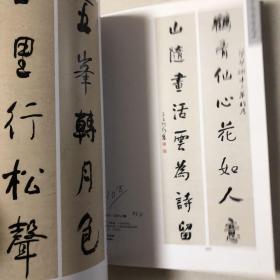 鶴有仙心花如人意
山隨畫活雲為詩留
五峯轉月色
里行松聲